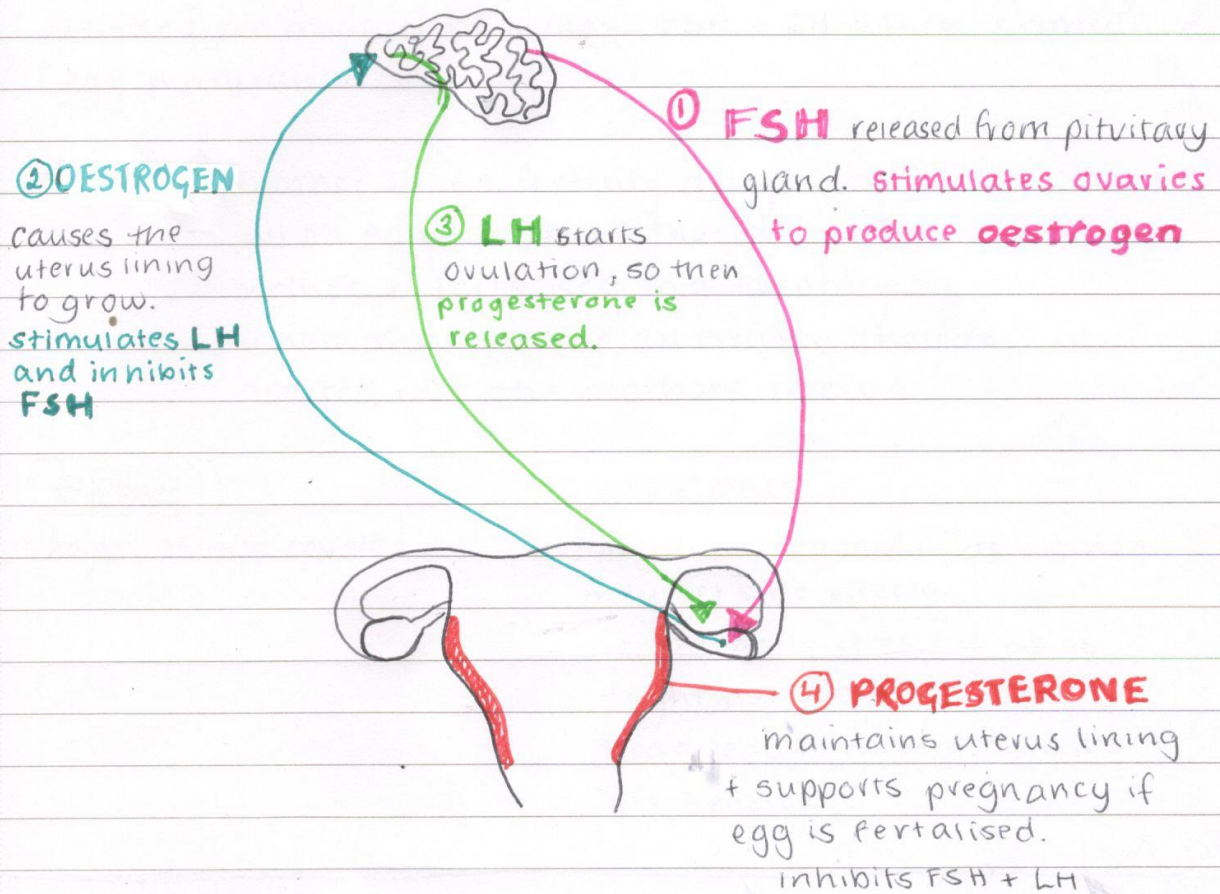 ① FSH released from pituitary
gland. stimulates ovaries
to produce oestrogen
② OESTROGEN
causes the
uterus lining
to grow.
stimulates LH
and inhibits
FSH
③ LH starts
ovulation, so then
progesterone is
released.
④ PROGESTERONE
maintains uterus lining
+ supports pregnancy if
egg is fertalised.
inhibits FSH + LH